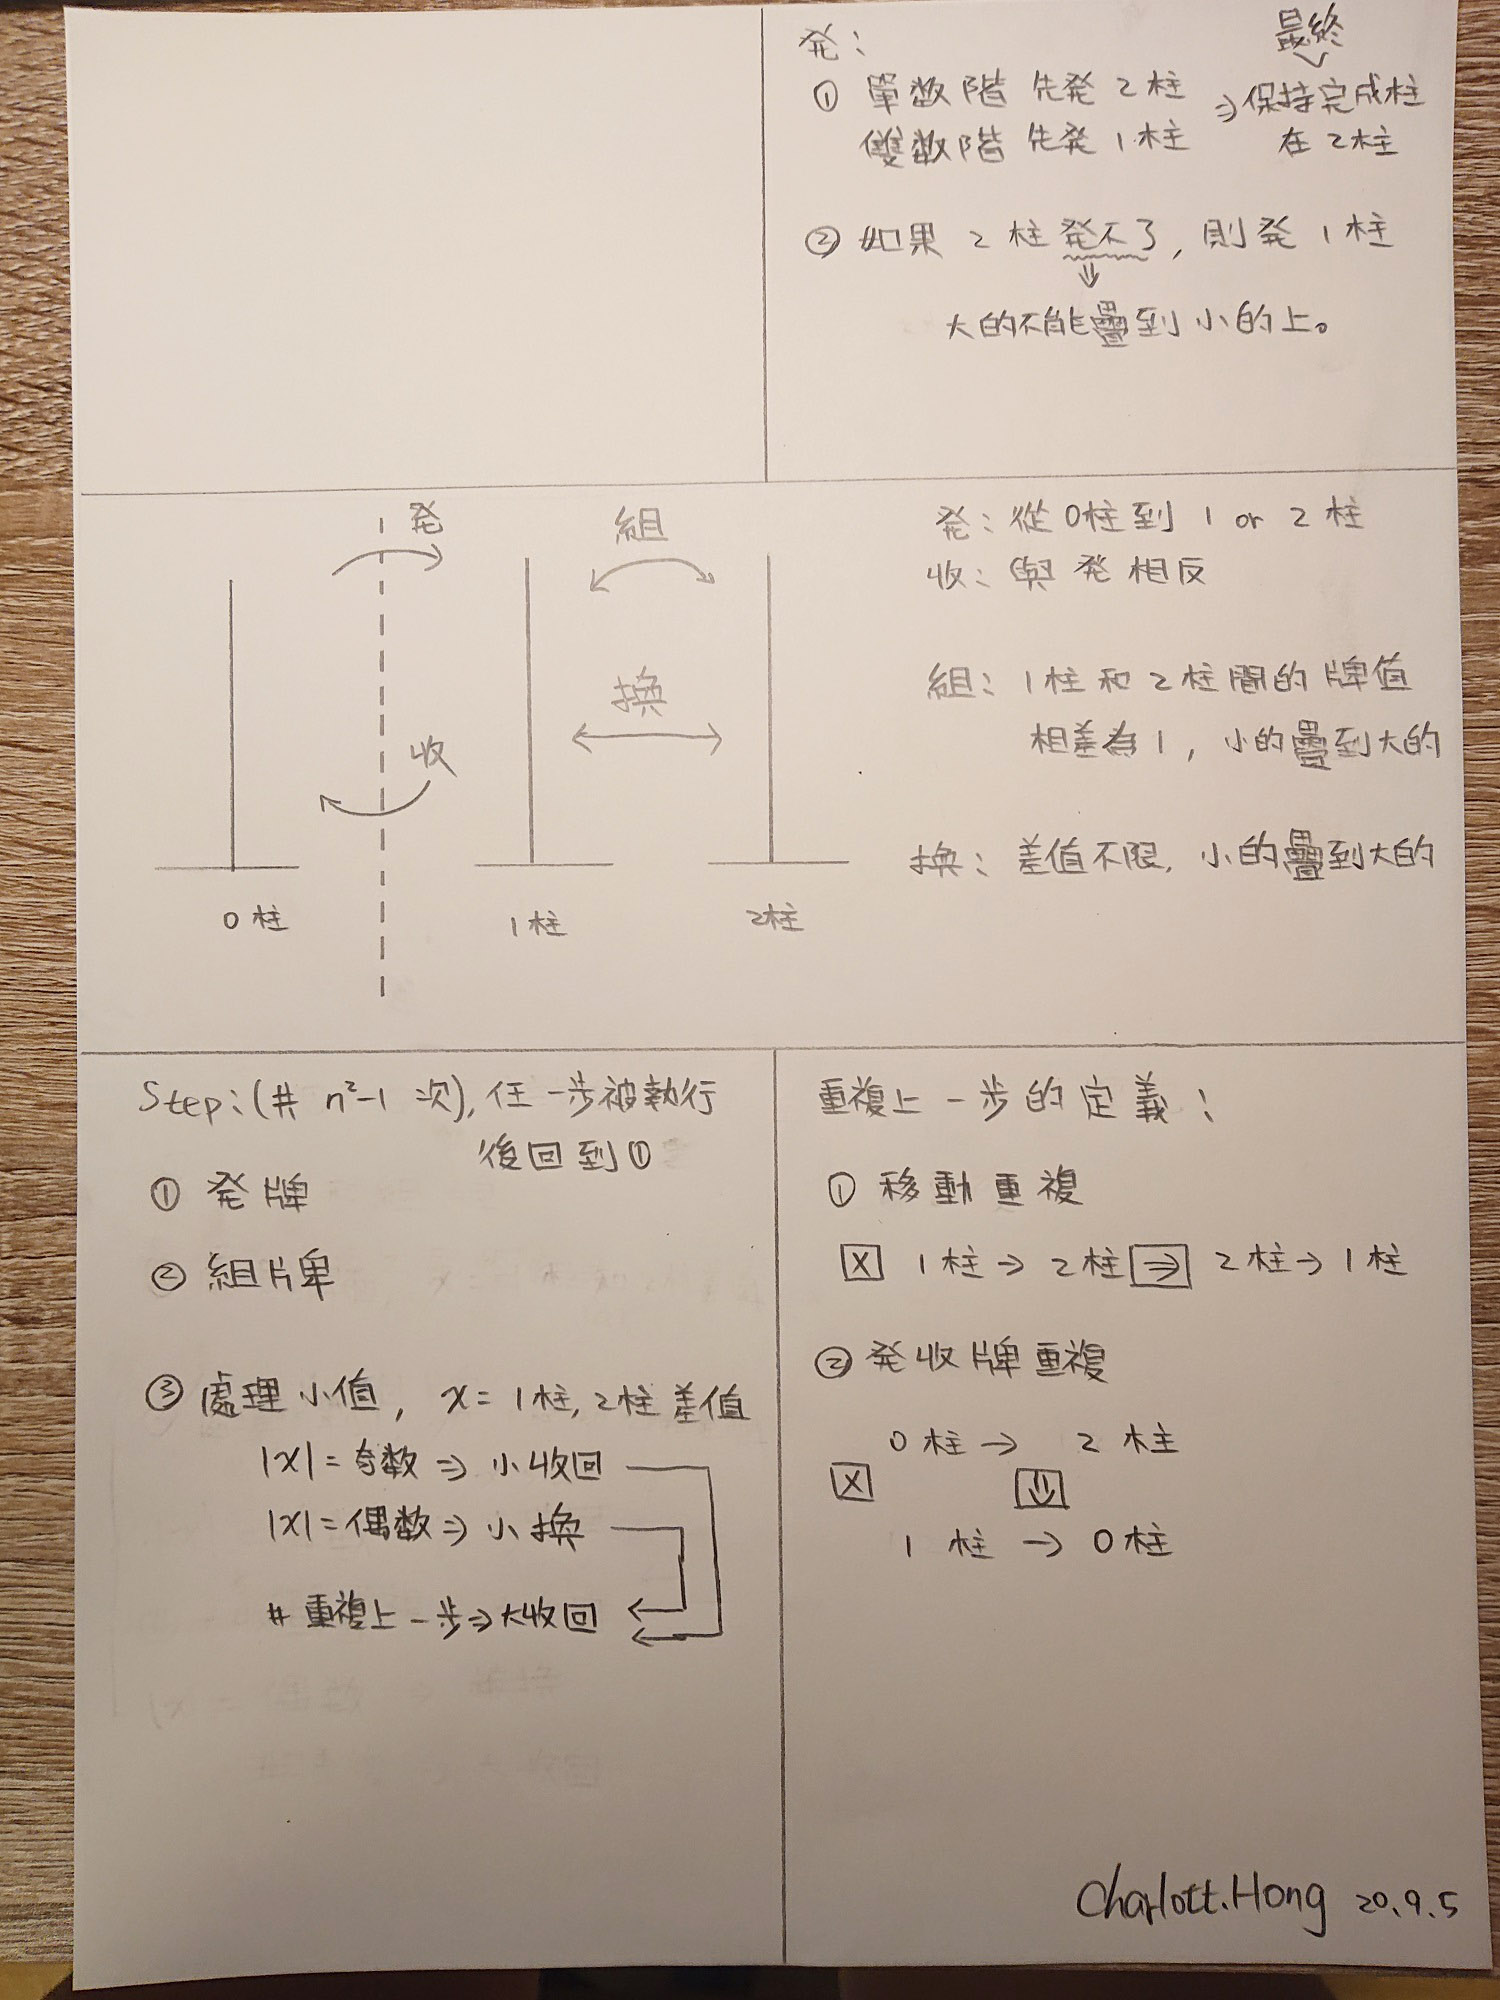 発:
最終
① 單数階 先発 2 柱 ⇒保持完成柱
雙数階 先発 1 柱 在 2 柱
② 如果 2 柱 発不了, 則発 1 柱
⇓
大的不能疊到小的上。
発
組
換
收
0 柱
1 柱
2 柱
発: 從 0柱到 1 or 2 柱
收: 與発相反
組: 1 柱和 2 柱間的牌值
相差為 1, 小的疊到大的
換: 差值不限, 小的疊到大的
Step:(# n²-1 次), 任一步被執行
後回到①
① 発牌
② 組牌
③ 處理小值, x = 1柱, 2柱差值
|x| = 奇数 ⇒ 小收回
|x| = 偶数 ⇒ 小換
# 重複上一步⇒大收回
重複上一步的定義:
① 移動重複
X 1柱 → 2柱 ⇒ 2柱 → 1柱
② 発收牌重複
0 柱 → 2 柱
X ⇓
1 柱 → 0 柱
Charlott.Hong 20.9.5